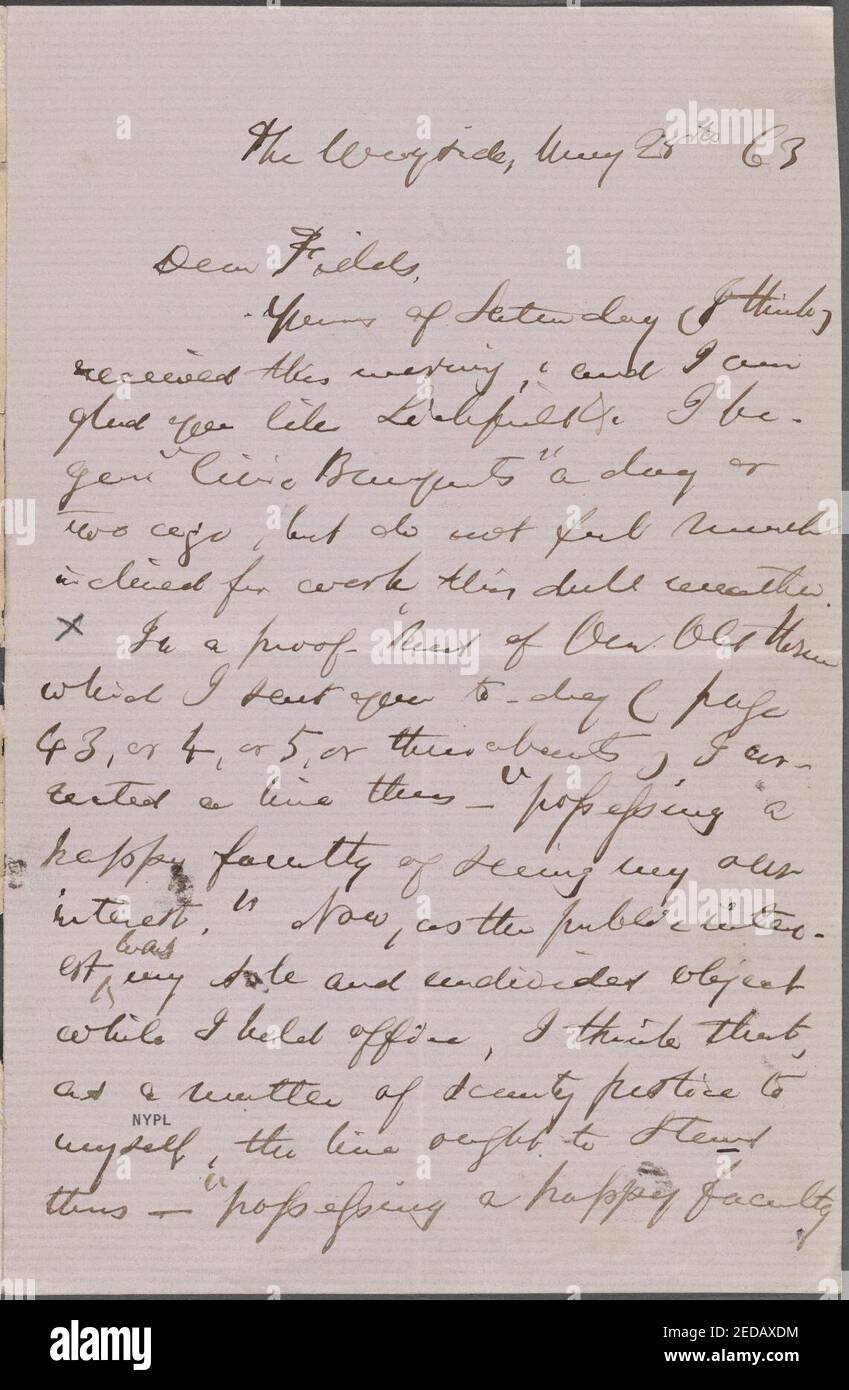 The Wayside, May 28th 63
Dear Fields,
Yours of Saturday (I think)
received this morning, and I am
glad you like Lichfield &c I be-
gan "Civic Banquets" a day or
two ago, but do not feel much
inclined for work this dull weather.
x In a proof-sheet of Our Old Home
which I sent you to-day (page
43, or 4, or 5, or thereabouts) I cor-
rected a line thus — "possessing a
happy faculty of seeing my own
interest." Now, as the public inter-
est was my sole and undivided object
while I held office, I think that,
as a matter of scanty justice to
NYPL
myself, the line ought to stand
thus — "possessing a happy faculty
a alamy
alamy
Image ID: 2EDAXDM
www.alamy.com